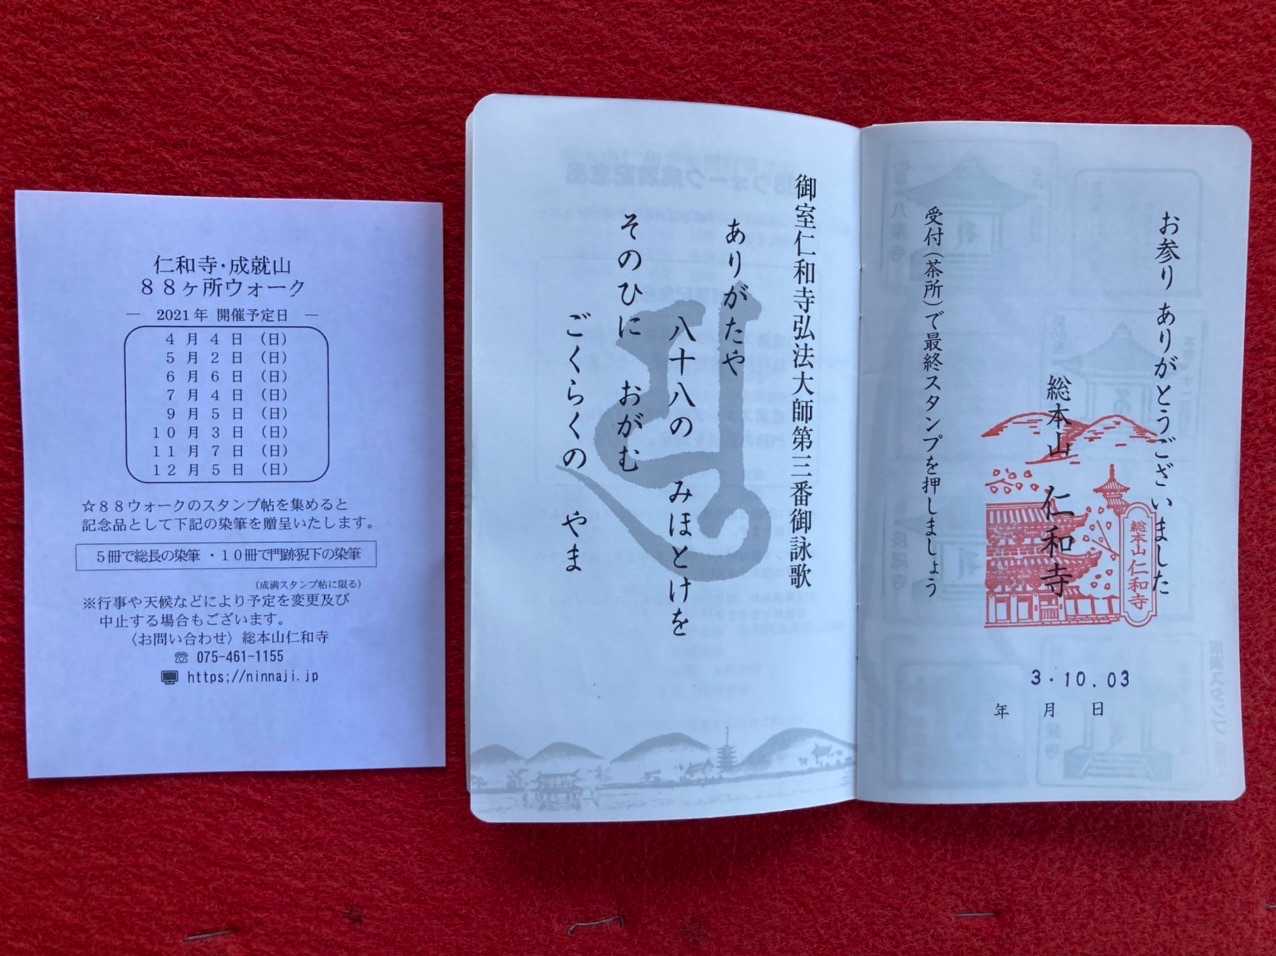 仁和寺・成就山
８８ヶ所ウォーク
― 2021年 開催予定日 ―
４月４日（日）
５月２日（日）
６月６日（日）
７月４日（日）
９月５日（日）
１０月３日（日）
１１月７日（日）
１２月５日（日）
☆８８ウォークのスタンプ帖を集めると
記念品として下記の染筆を贈呈いたします。
５冊で総長の染筆・１０冊で門跡猊下の染筆
（成満スタンプ帖に限る）
※行事や天候などにより予定を変更及び
中止する場合もございます。
〈お問い合わせ〉総本山仁和寺
☏ 075-461-1155
https;//ninnaji.jp
お参り ありがとうございました
総本山 仁和寺
総本山仁和寺
受付（茶所）で最終スタンプを押しましょう
3.10.03
年 月 日
御室仁和寺弘法大師第三番御詠歌
ありがたや
八十八の みほとけを
そのひに おがむ
ごくらくの やま